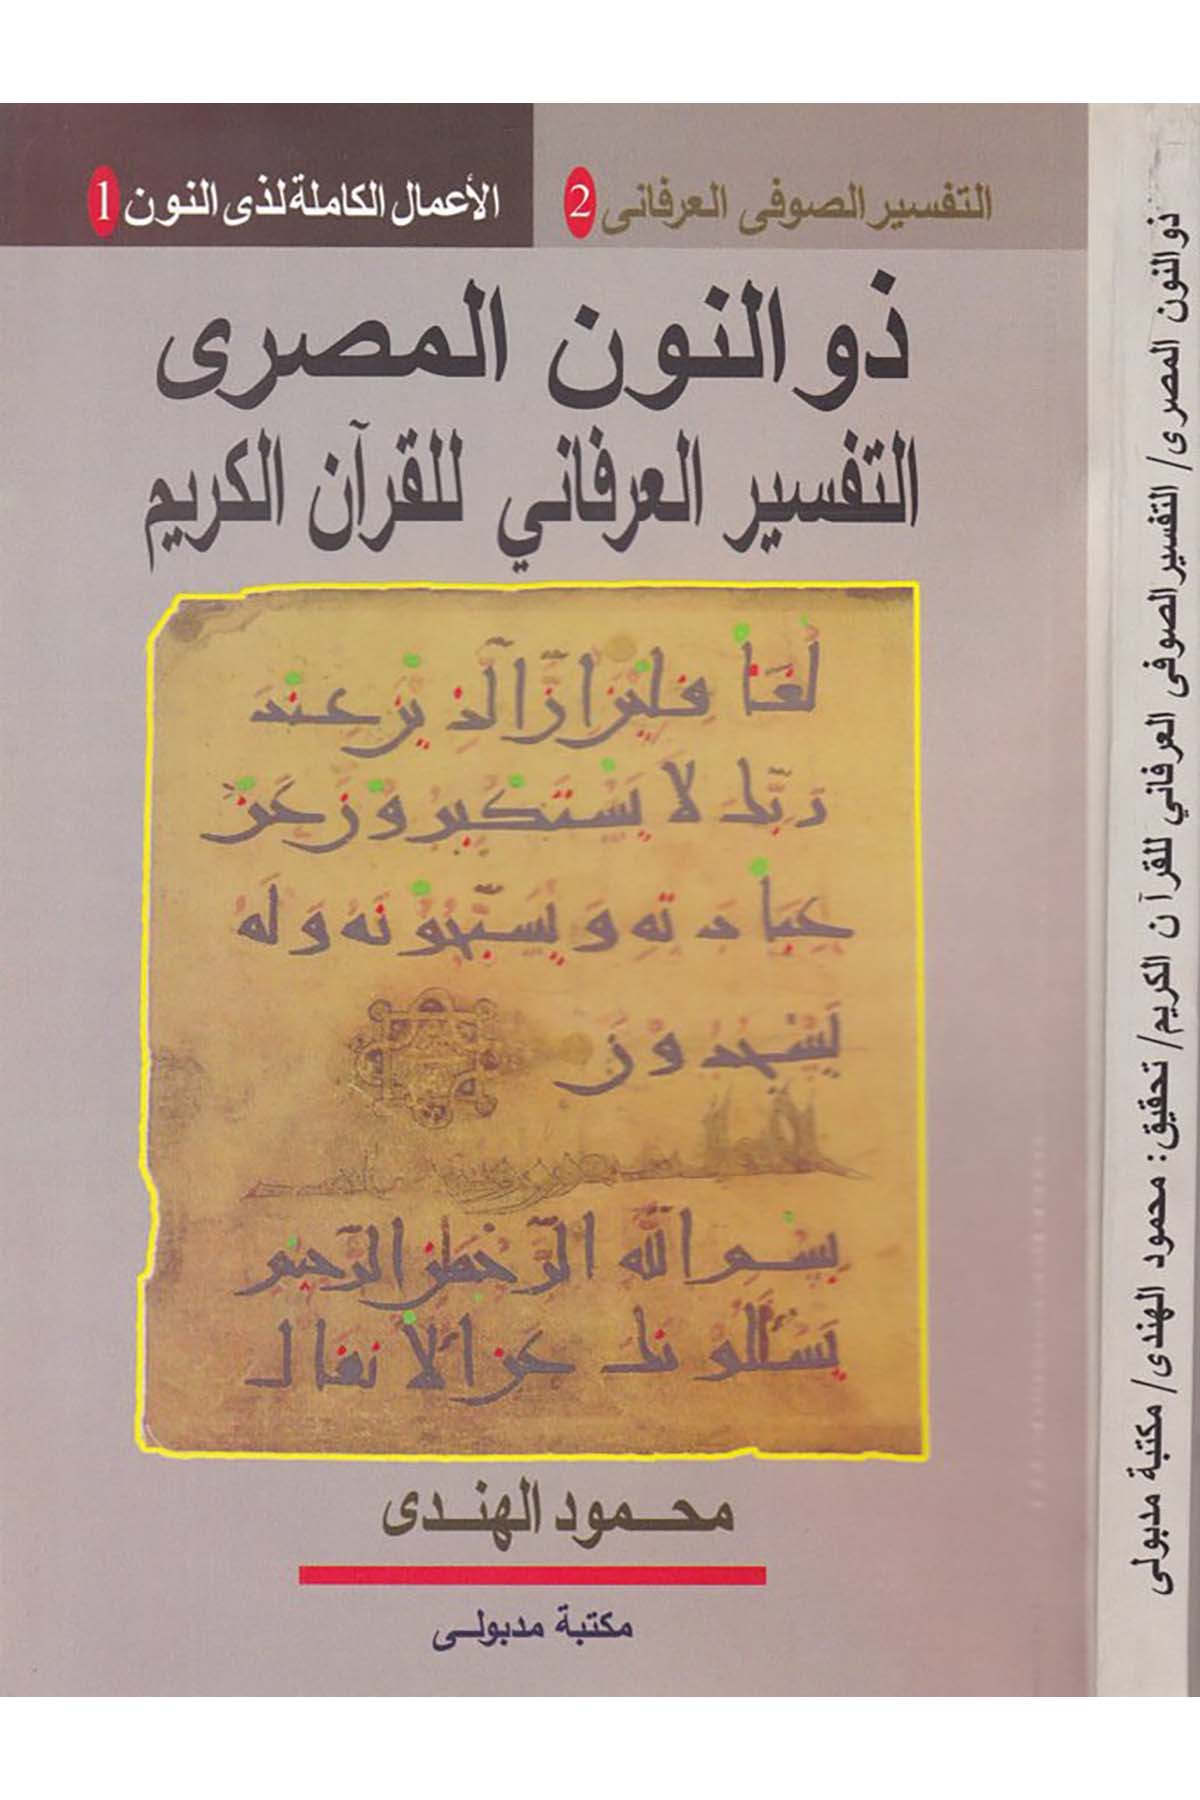 التفسير الصوفى العرفانى 2
الأعمال الكاملة لذى النون 1
ذو النون المصرى
التفسير العرفاني للقرآن الكريم
ربك لا يستكبرون عن
عبادته ويسبحونه وله
يسجدون
بسم الله الرحمن الرحيم
يسألونك عن الأنفال
محمود الهندى
مكتبة مدبولى
ذو النون المصرى/ التفسير الصوفى العرفاني للقرآن الكريم/ تحقيق: محمود الهندى/ مكتبة مدبولى